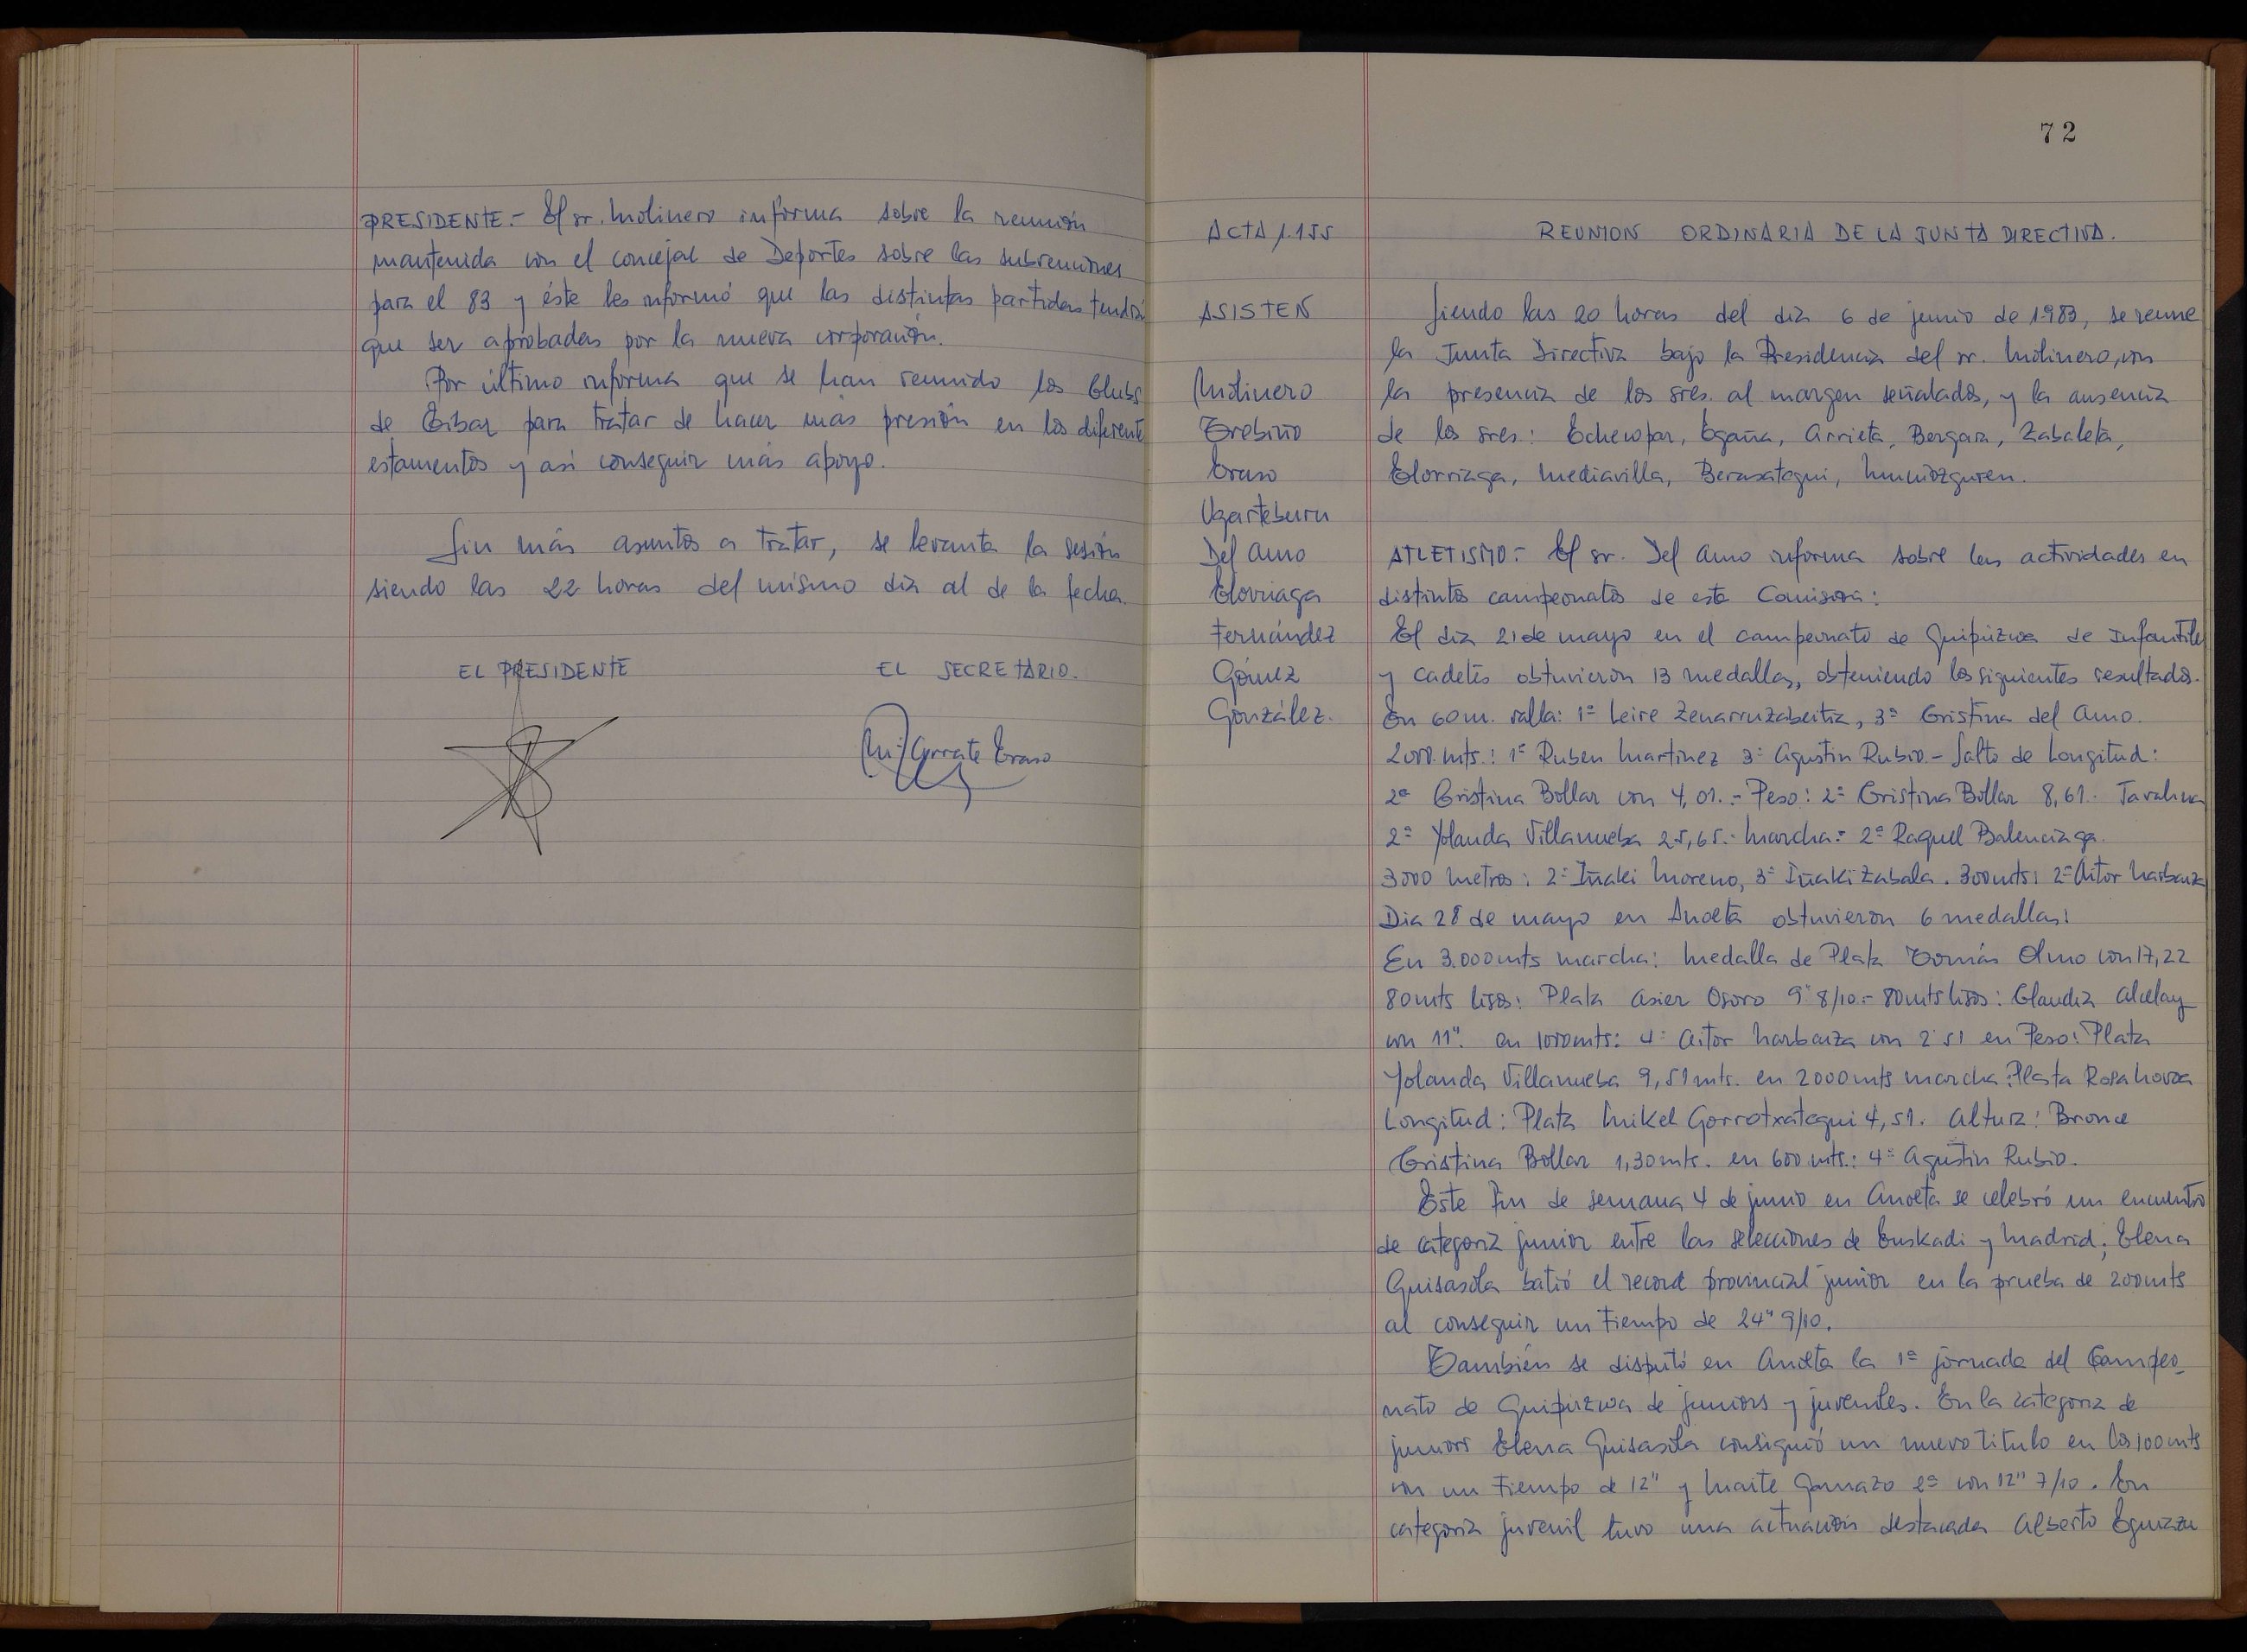 PRESIDENTE.- El sr. Molinero informa sobre la reunión
mantenida con el concejal de Deportes sobre las subvenciones
para el 83 y éste les informó que las distintas partidas tendrán
que ser aprobadas por la nueva corporación.
Por último informa que se han reunido los Clubs
de Eibar para tratar de hacer más presión en los diferente
estamentos y asi conseguir más apoyo.
Sin más asuntos a tratar, se levanta la sesión
siendo las 22 horas del mismo dia al de la fecha.
EL PRESIDENTE
EL SECRETARIO.
72
ACTA 1.155
REUNION ORDINARIA DE LA JUNTA DIRECTIVA.
ASISTEN
Molinero
Trebiño
Eraso
Ugarteburu
Del Amo
Elorriaga
Fernández
Gómez
González.
Siendo las 20 horas del dia 6 de junio de 1.983, se reune
la Junta Directiva bajo la Presidencia del sr. Molinero, con
la presencia de los sres. al margen señalados, y la ausencia
de los sres.: Echeverria, Egaña, Arrieta, Bergara, Zabaleta,
Elorriaga, Mediavilla, Berasategui, Muniozguren.
ATLETISMO.- El sr. Del Amo informa sobre las actividades en
distintos campeonatos de esta Comisión:
El dia 21 de mayo en el campeonato de Guipúzcoa de Infantiles
y cadetes obtuvieron 13 medallas, obteniendo los siguientes resultados.
En 60 m. valla: 1ª Leire Zenarruzabeitia, 3ª Cristina del Amo.
2000 mts.: 1º Ruben Martinez 3º Agustin Rubio.- Salto de Longitud:
2ª Cristina Bollar con 4,01.- Peso: 2ª Cristina Bollar 8,61. Javalina
2ª Yolanda Villanueba 25,65.- Marcha: 2ª Raquel Balenciaga.
3000 metros: 2º Iñaki Moreno, 3º Iñaki Zabala. 300 mts: 2º Aitor Narbaiza
Dia 28 de mayo en Anoeta obtuvieron 6 medallas:
En 3.000 mts marcha: medalla de Plata Tomás Olmo con 17,22
80 mts lisos: Plata Asier Osoro 9" 8/10.- 80 mts lisos: Claudia Alcelay
con 11". en 1000 mts: 4º Aitor Narbaiza con 2'51 en Peso: Plata
Yolanda Villanueba 9,51 mts. en 2000 mts marcha: Plata Rosa
Longitud: Plata Mikel Gorrotxategui 4,51. Altura: Bronce
Cristina Bollar 1,30 mts. en 600 mts.: 4º Agustin Rubio.
Este fin de semana 4 de junio en Anoeta se celebró un encuentro
de categoria junior entre las selecciones de Euskadi y Madrid; Elena
Guisasola batió el record provincial junior en la prueba de 200 mts
al conseguir un tiempo de 24" 9/10.
También se disputó en Anoeta la 1ª jornada del Campeo_
nato de Guipúzcoa de juniors y juveniles. En la categoria de
juniors Elena Guisasola consiguió un nuevo titulo en los 100 mts
con un tiempo de 12" y Maite Gamazo 2ª con 12" 7/10. En
categoria juvenil tuvo una actuación destacada Alberto Eguiazu